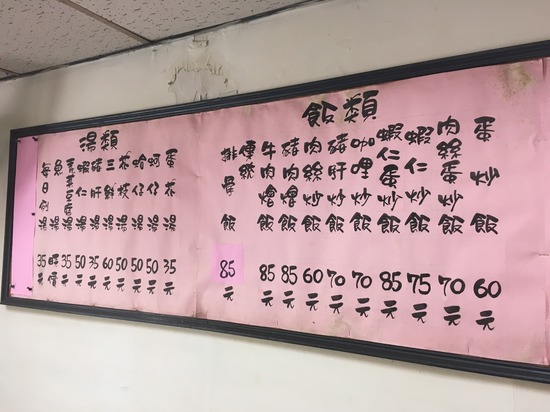 飯類
蛋炒飯 60元
肉絲蛋炒飯 70元
蝦仁炒飯 75元
蝦仁蛋炒飯 85元
咖哩炒飯 70元
豬肝炒飯 70元
肉絲炒飯 60元
豬肉燴飯 85元
牛肉燴飯 85元
傳統
排骨飯 85元
湯類
蛋花湯 35元
蚵仔湯 50元
哈仔湯 50元
花枝湯 50元
三鮮湯 60元
豬肝湯 35元
蝦仁湯 50元
菜豆腐湯 35元
魚湯 時價
每日例湯 35元